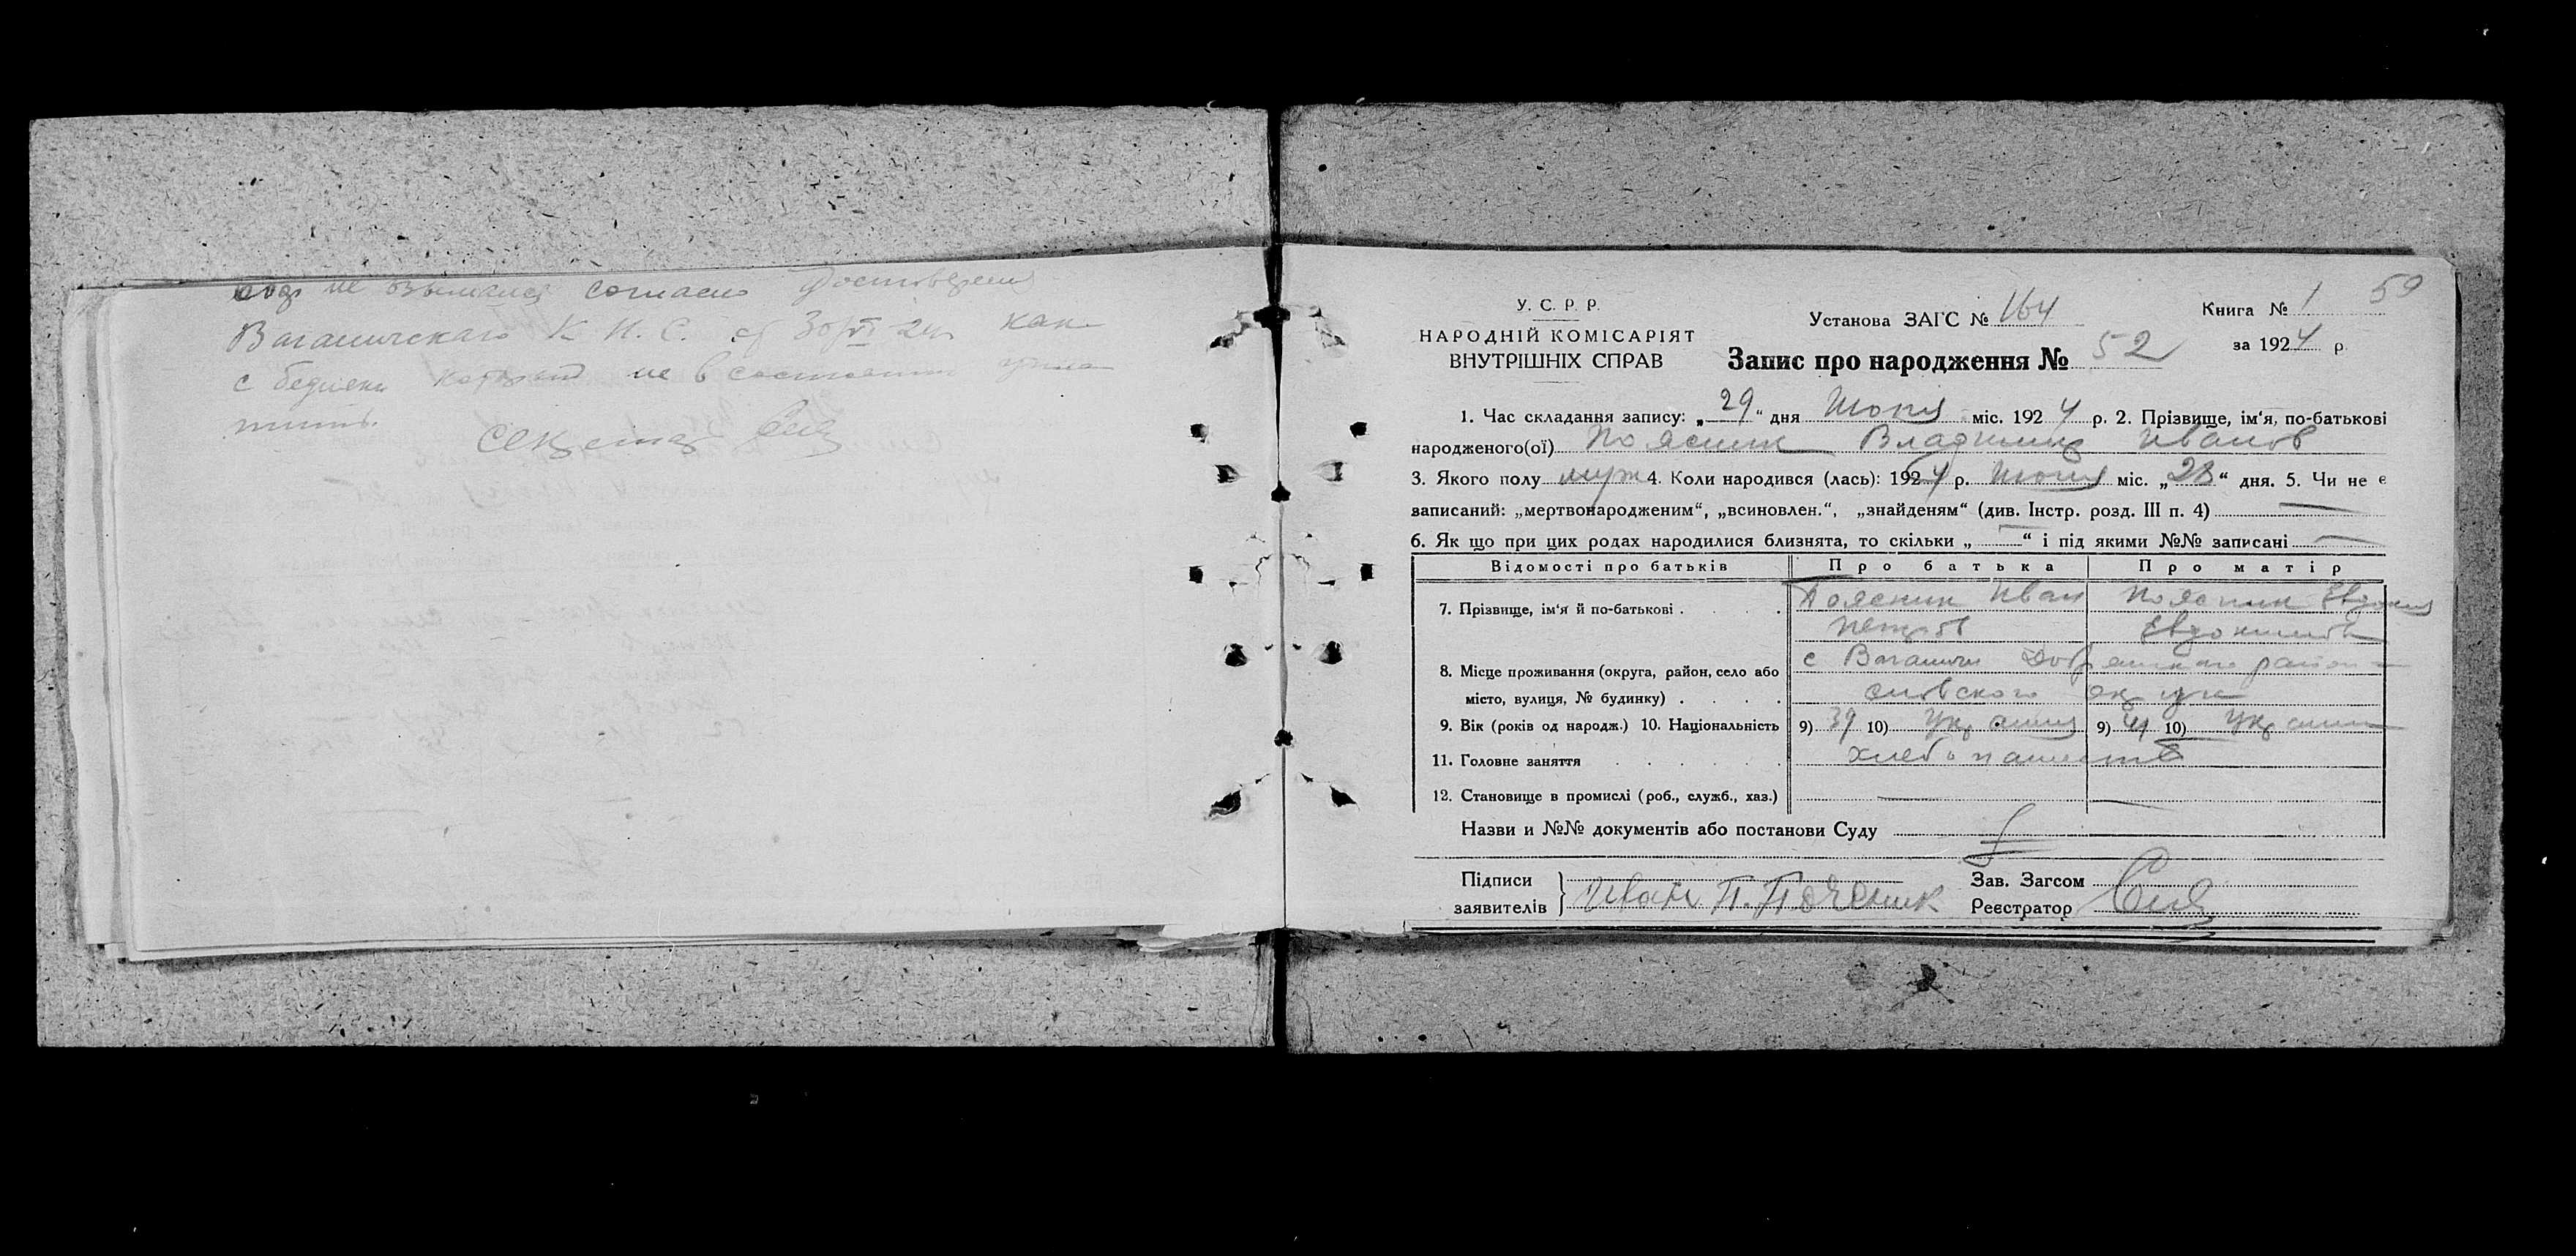 не взымался согласно
Ваганичскаго К. Н. С. от 30/VI 24 г. как
с бедняка который не в состоянии упла
тить.
Секретар
У. С. Р. Р.
НАРОДНІЙ КОМІСАРІЯТ
ВНУТРІШНІХ СПРАВ
Установа ЗАГС № 164
Книга № 1 59
за 1924 р.
Запис про народження № 52
1. Час складання запису: „29“ дня Июня міс. 1924 р. 2. Прізвище, ім‘я, по-батькові
народженого(ої) Поясник Владимир Иванов
3. Якого полу муж 4. Коли народився (лась): 1924 р. Июня міс. „28“ дня. 5. Чи не є
записаний: „мертвонародженим“, „всиновлен.“, „знайденям“ (див. Інстр. розд. III п. 4) —
6. Як що при цих родах народилися близнята, то скільки „—“ і під якими №№ записані —
Відомості про батьків Про батька Про матір
7. Прізвище, ім‘я й по-батькові . . . . Поясник Иван Поясник Евдокия
Петров Евдокимов
8. Місце проживання (округа, район, село або с Ваганичи Добрянскаго района
місто, вулиця, № будинку) . . . . сновского округа
9. Вік (років од народж.) 10. Національність 9) 39 10) Украинец 9) 10)
11. Головне заняття . . . . . . хлебопашество
12. Становище в промислі (роб., служб., хаз.) — —
Назви и №№ документів або постанови Суду
Підписи
заявителів } Иван П. Поясник
Зав. Загсом
Реєстратор